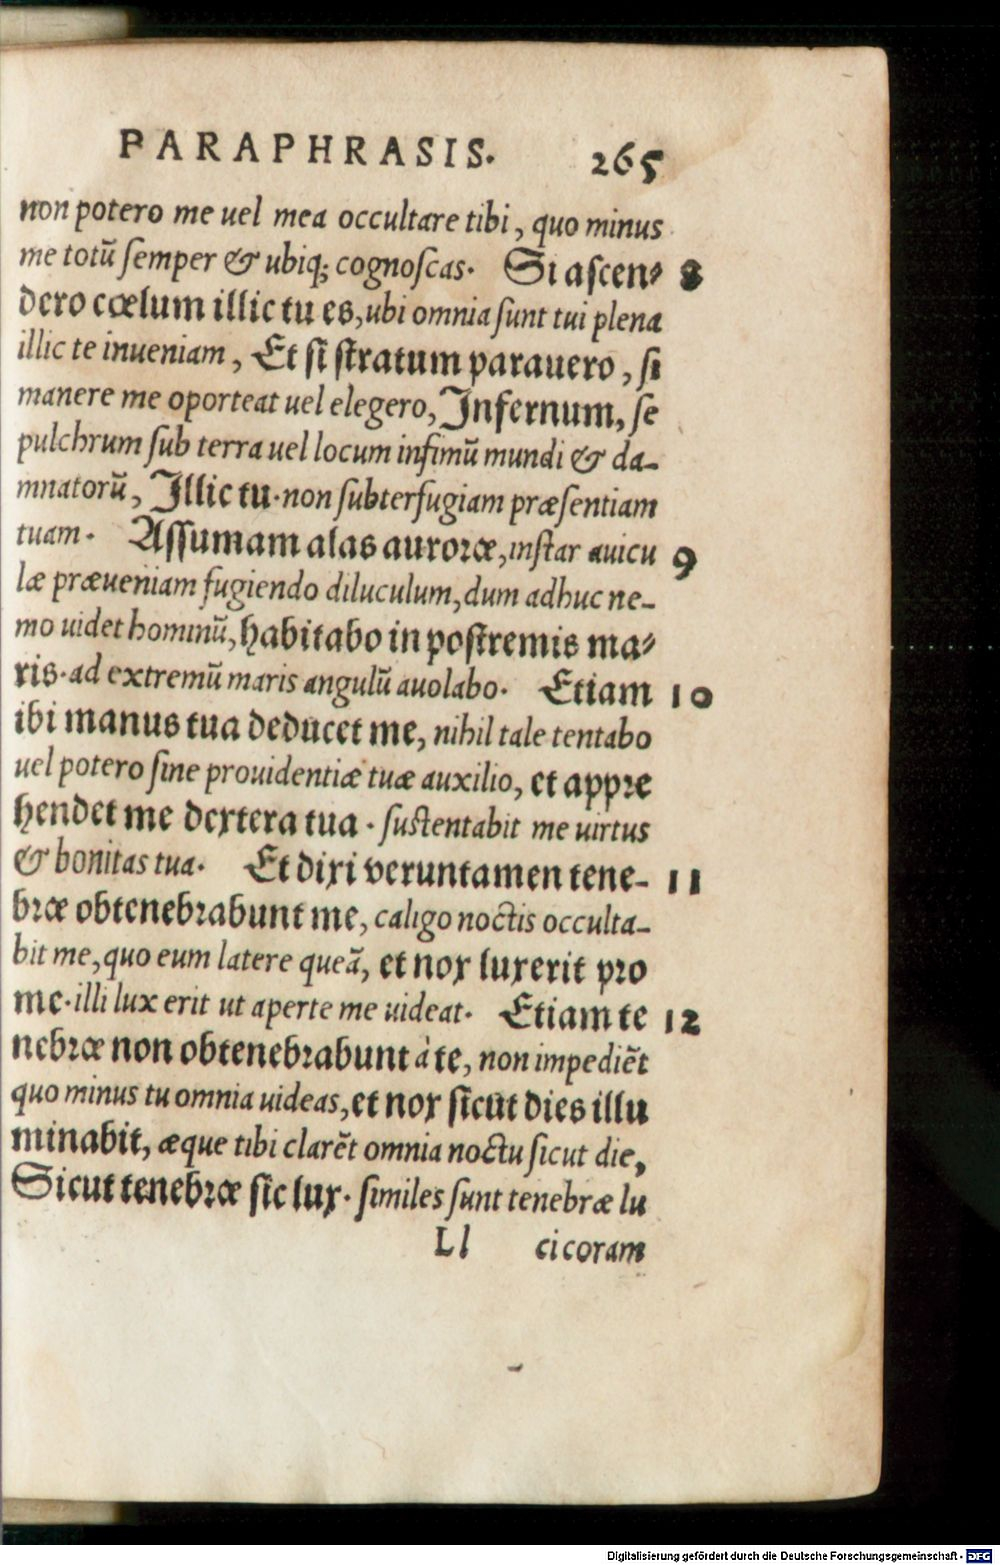 PARAPHRASIS. 265
non potero me uel mea occultare tibi, quo minus
me totū semper & ubiq; cognoscas. Si ascen⸗ 8
dero cœlum illic tu es, ubi omnia sunt tui plena
illic te inueniam, Et si stratum parauero, si
manere me oporteat uel elegero, Infernum, se
pulchrum sub terra uel locum infimū mundi & da-
mnatorū, Illic tu. non subterfugiam præsentiam
tuam. Assumam alas auroræ, instar auicu 9
læ præueniam fugiendo diluculum, dum adhuc ne-
mo uidet hominū, habitabo in postremis ma⸗
ris. ad extremū maris angulū auolabo. Etiam 10
ibi manus tua deducet me, nihil tale tentabo
uel potero sine prouidentiæ tuæ auxilio, et appre
hendet me dextera tua. sustentabit me uirtus
& bonitas tua. Et dixi veruntamen tene- 11
bræ obtenebrabunt me, caligo noctis occulta-
bit me, quo eum latere queā, et nox lux erit pro
me. illi lux erit ut aperte me uideat. Etiam te 12
nebræ non obtenebrabunt à te, non impediēt
quo minus tu omnia uideas, et nox sicut dies illu
minabit, æque tibi clarēt omnia noctu sicut die,
Sicut tenebræ sic lux. similes sunt tenebræ lu
Ll ci coram
Digitalisierung gefördert durch die Deutsche Forschungsgemeinschaft - DFG